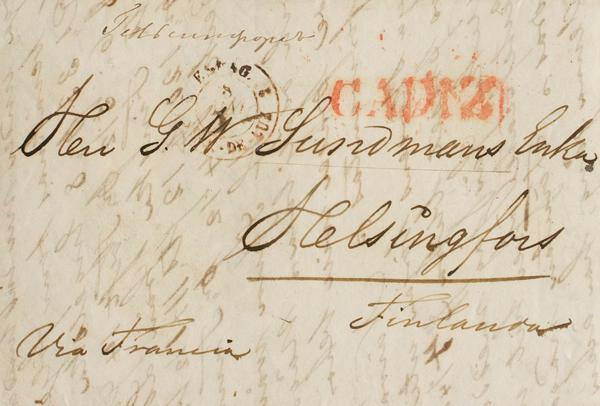 CADIZ
Herr G. W. Sundmans Enka
Helsingfors
Finlandia
Via Francia